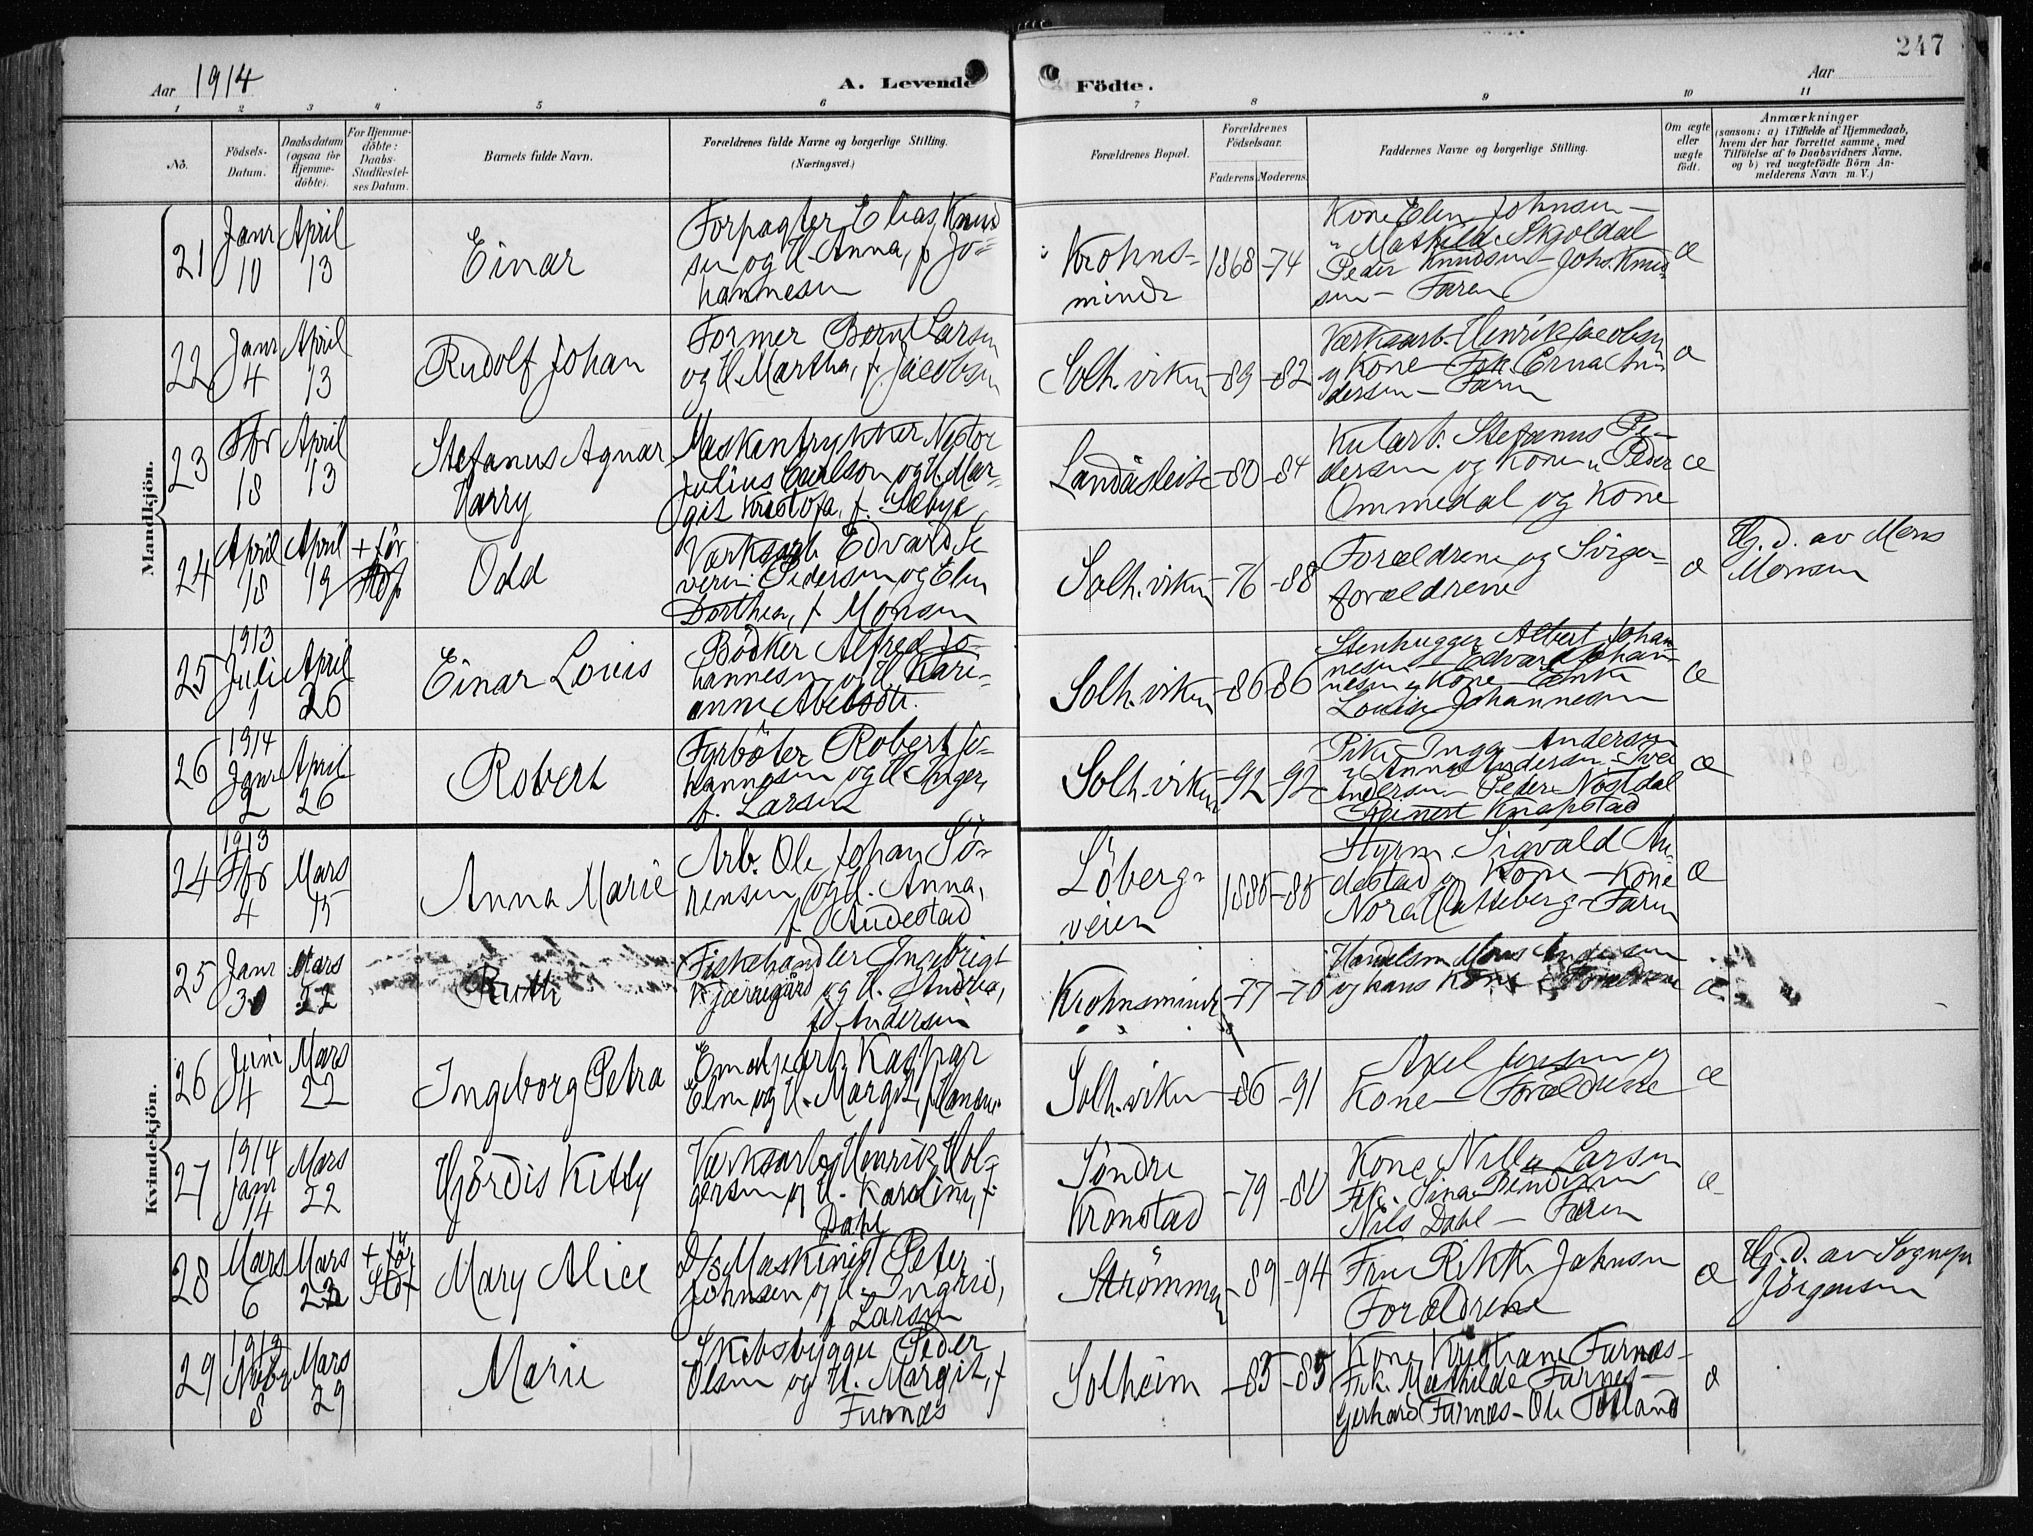 247
Aar 1914
A. Levende Födte.
Aar
1 2 3 4 5 6 7 8 9 10 11
No.
Födsels-Datum.
Daabsdatum (ogsaa for Hjemme-döbte).
For Hjemme-döbte: Daabs-Stadfæstel-ses Datum.
Barnets fulde Navn.
Forældrenes fulde Navne og borgerlige Stilling. (Næringsvei.)
Forældrenes Bopæl.
Forældrenes Födselsaar.
Faderens. Moderens.
Faddernes Navne og borgerlige Stilling.
Om ægte eller uægte födt.
Anmærkninger
(saasom: a) i Tilfælde af Hjemmedaab,
hvem der har forrettet samme, med
Tilföielse af to Daabsvidners Navne,
og b) ved uægtefödte Börn An-
melderens Navn m. V.)
Mandkjön.
21 Janr 10 April 13
Einar
Forpagter Elias Knud
sen og H. Anna, f. Jo-
hannesen
Krohns-
minde
1868 -74
Kone Elen Johnsen -
" Mathilde Skjoldal
Peder Knudsen - Johs. Knud
sen - Faren
æ
22 Janr 4 April 13
Rudolf Johan
Former Bernt Larsen
og H. Martha, f. Jacobsen
Solh.viken -89 -82
Værksarb. Henrik Jacobsen
og Kone - Frk. Erna An
dersen - Faren
æ
23 Fbr 18 April 13
Stefanus Agnar
Harry
Maskintrykker Nestor
Julius Carlson og H. Mar-
git Kristofa, f. Sæbye
Landåsleite -80 -84
Kularb. Stefanus Pe-
dersen og Kone, Peder
Ommedal og Kone
æ
24 April 18 April 19 + før
Odd
Værksarb Edvard Se
verin Pedersen og Elen
Dorthea, f. Monsen
Solh.viken -76 -88
Forældrene og Sviger-
forældrene
æ
Hj. d. av Mons
Monsen
25 1913 Juli 1 April 26
Einar Louis
Bødker Alfred Jo-
hannesen og H. Kari-
anne Abelsdtr.
Solh.viken -86 86
Stenhugger Albert Johan
nesen - Edvard Johan-
nesen og Kone - Enke
Louise Johannesen
æ
26 1914 Janr 2 April 26
Robert
Fyrbøter Robert Jo-
hannesen og H. Inger,
f. Larsen
Solh.viken -92 -92
Pike Inga Andersen
" Anna Andersen - Iver
Andersen - Peder Nøstdal
Reinert Knapstad
æ
Kvindekjön.
24 1913 Fbr 4 Mars 15
Anna Marie
Arb. Ole Johan Sö-
rensen og H. Anna,
f. Audestad
Löberg-
veien
1885 -85
Styrm. Sigvald Au-
destad og Kone - Kone
Nora Hatteberg - Faren
æ
25 Janr 30 Mars 22
Ruth
Fiskehandler Ingebrigt
Kjærregård og H. Andrea,
f. Andersen
Krohnsminde -77 -70
Handelsm Mons Andersen
og hans Kone - Forældrene
æ
26 Juni 4 Mars 22
Ingeborg Petra
Emaljearb. Kaspar
Elm og H. Margit, f. Hansen
Solh.viken -86 -91
Axel Jensen og
Kone - Forældrene
æ
27 1914 Janr 14 Mars 22
Hjördis Kitty
Værksarb. Henrik Hol-
gersen og H. Karoline, f.
Dahl
Søndre
Kronstad
-79 -80
Kone Nilla Larsen
Frk. Sina Bendixen
Nils Dahl - Faren
æ
28 Mars 6 Mars 22 + før
Mary Alice
D/s Maskinist Peter
Johnsen og H. Ingrid,
f. Larsen
Strømmen -89 -94
Fru Rikke Johnsen
Forældrene
æ
Hj. d. av Sognepr
Jørgensen
29 1913 Novbr 8 Mars 29
Marie
Skibsbygger Peder
Olsen og H. Margit, f.
Furnæs
Solheim -85 -85
Kone Kristiane Furnæs -
Frk. Mathilde Furnes -
Gerhard Furnæs - Ole Totland
æ